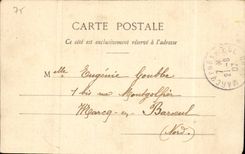 CARTE POSTALE
Ce côté est exclusivement réservé à l'adresse
Melle Eugénie Goubbe
1 bis rue Montgolfier
Marcq-en-Barœul
(Nord)